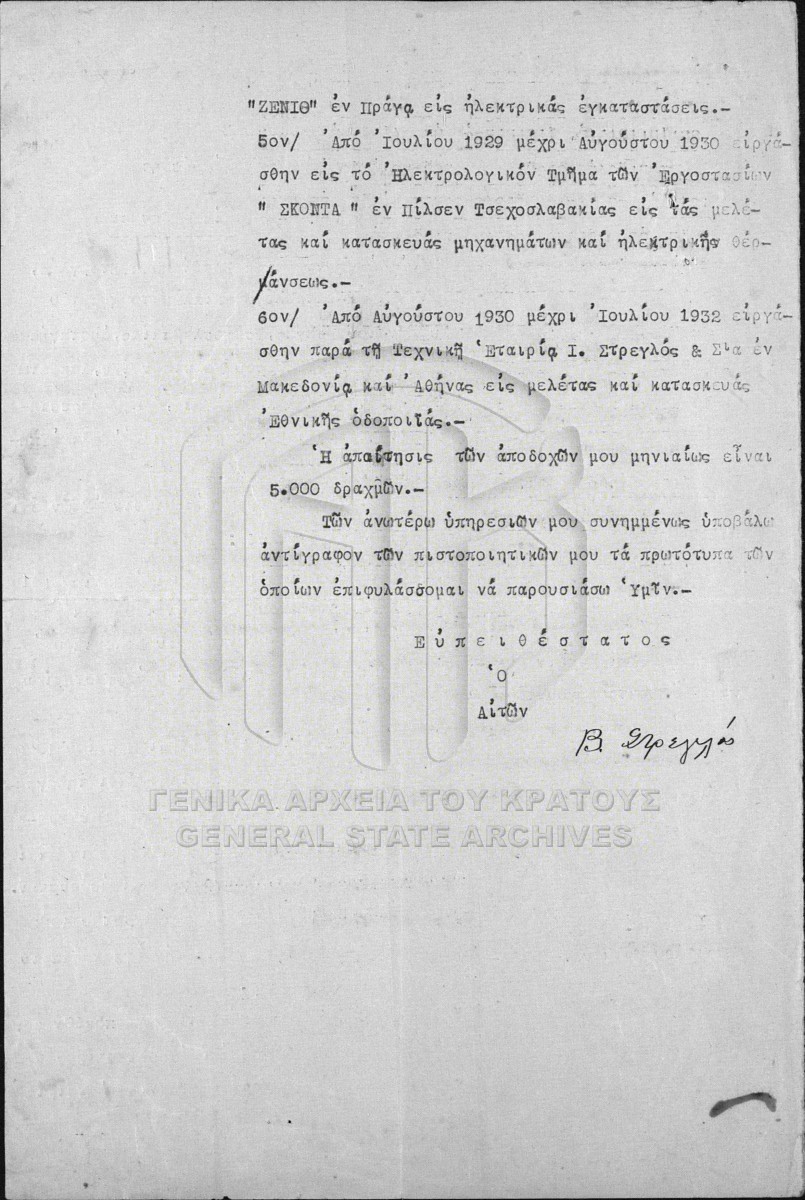 "ΖΕΝΙΘ" ἐν Πράγᾳ εἰς ἠλεκτρικάς ἐγκαταστάσεις.-
5ον/ Ἀπό Ἰουλίου 1929 μέχρι Αὐγούστου 1930 εἰργά-
σθην εἰς τό Ἠλεκτρολογικόν Τμῆμα τῶν Ἐργοστασίων
" ΣΚΟΝΤΑ " ἐν Πίλσεν Τσεχοσλαβακίας εἰς τάς μελέ-
τας καί κατασκευάς μηχανημάτων καί ἠλεκτρικῆς θέρ-
μάνσεως.-
6ον/ Ἀπό Αὐγούστου 1930 μέχρι Ἰουλίου 1932 εἰργά-
σθην παρά τῇ Τεχνικῇ Ἑταιρίᾳ Ι. Στρεγλός & Σια ἐν
Μακεδονίᾳ καί Ἀθήνας εἰς μελέτας καί κατασκευάς
Ἐθνικῆς ὁδοποιϊάς.-
Ἡ ἀπαίτησις τῶν ἀποδοχῶν μου μηνιαίως εἶναι
5.000 δραχμῶν.-
Τῶν ἀνωτέρω ὑπηρεσιῶν μου συνημμένως ὑποβάλω
ἀντίγραφον τῶν πιστοποιητικῶν μου τά πρωτότυπα τῶν
ὁποίων ἐπιφυλάσσομαι νά παρουσιάσω Ὑμῖν.-
Εὐπειθέστατος
Ὁ
Αἰτῶν
Β. Στρεγλός
ΓΕΝΙΚΑ ΑΡΧΕΙΑ ΤΟΥ ΚΡΑΤΟΥΣ
GENERAL STATE ARCHIVES